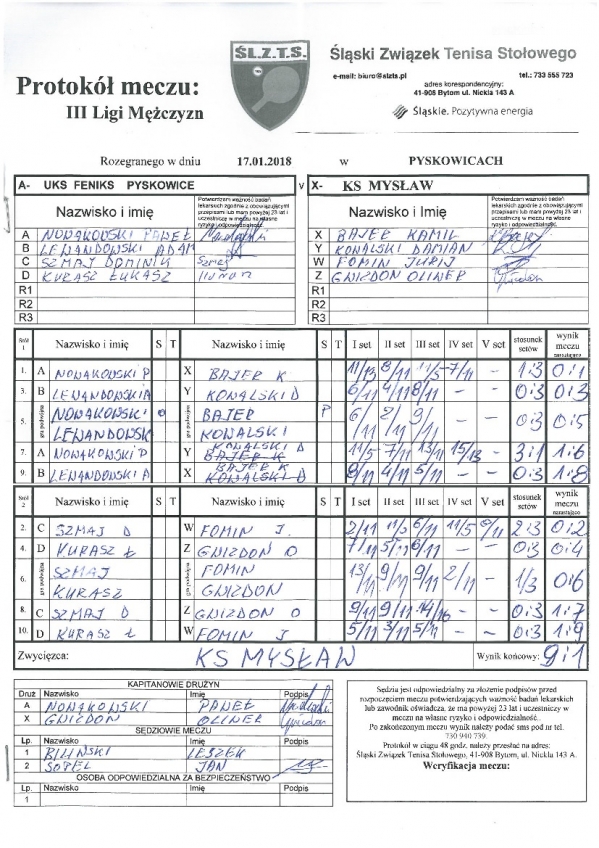 ŚL.Z.T.S.
Śląski Związek Tenisa Stołowego
e-mail: biuro@slzts.pl tel.: 733 555 723
adres korespondencyjny:
41-908 Bytom ul. Nickla 143 A
Śląskie. Pozytywna energia
Protokół meczu:
III Ligi Mężczyzn
Rozegranego w dniu 17.01.2018 w PYSKOWICACH
A- UKS FENIKS PYSKOWICE v X- KS MYSŁAW
Nazwisko i imię
Potwierdzam ważność badań lekarskich zgodnie z obowiązującymi przepisami lub mam powyżej 23 lat i uczestniczę w meczu na własne ryzyko i odpowiedzialność.
Nazwisko i imię
Potwierdzam ważność badań lekarskich zgodnie z obowiązującymi przepisami lub mam powyżej 23 lat i uczestniczę w meczu na własne ryzyko i odpowiedzialność.
A NOWAKOWSKI PAWEŁ X BAJER KAMIL
B LEWANDOWSKI ADAM Y KOWALSKI DAMIAN
C SZMAJ DOMINIK W FOMIN JURIJ
D KURASZ ŁUKASZ Z GWIZDON OLIWER
R1 R1
R2 R2
R3 R3
Stół 1 Nazwisko i imię S T Nazwisko i imię S T I set II set III set IV set V set stosunek setów wynik meczu narastająco
1. A NOWAKOWSKI P X BAJER K 11/13 8/11 7/11 1:3 0:1
3. B LEWANDOWSKI A Y KOWALSKI D 6/11 4/11 8/11 – – 0:3 0:3
5. gra podwójna NOWAKOWSKI BAJER P 6/11 2/11 9/11 – – 0:3 0:5
LEWANDOWSK KOWALSKI
7. A NOWAKOWSKI P Y KOWALSKI D BAJER K 11/5 7/11 13/11 15/13 – 3:1 1:6
9. B LEWANDOWSKI A X BAJER K KOWALSKI D 9/11 4/11 5/11 – – 0:3 1:8
Stół 2 Nazwisko i imię S T Nazwisko i imię S T I set II set III set IV set V set stosunek setów wynik meczu narastająco
2. C SZMAJ D W FOMIN J. 2/11 11/6 6/11 11/5 8/11 2:3 0:2
4. D KURASZ Ł Z GWIZDON O 7/11 5/11 6/11 – – 0:3 0:4
6. gra podwójna SZMAJ FOMIN 13/11 9/11 9/11 2/11 – 1/3 0:6
KURASZ GWIZDON
8. C SZMAJ D Z GWIZDON O 9/11 9/11 14/16 – – 0:3 1:7
10. D KURASZ Ł W FOMIN J 5/11 3/11 5/11 – – 0:3 1:9
Zwycięzca: KS MYSŁAW Wynik końcowy: 9:1
KAPITANOWIE DRUŻYN
Druż Nazwisko Imię Podpis
A NOWAKOWSKI PAWEŁ
X GWIZDON OLIWER
SĘDZIOWIE MECZU
Lp. Nazwisko Imię Podpis
1 BILIŃSKI LESZEK
2 SOPEL JAN
OSOBA ODPOWIEDZIALNA ZA BEZPIECZEŃSTWO
Lp. Nazwisko Imię Podpis
1
Sędzia jest odpowiedzialny za złożenie podpisów przed
rozpoczęciem meczu potwierdzających ważność badań lekarskich
lub zawodnik oświadcza, że ma powyżej 23 lat i uczestniczy w
meczu na własne ryzyko i odpowiedzialność.
Po zakończonym meczu wynik należy podać sms pod nr tel.
730 940 739.
Protokół w ciągu 48 godz. należy przesłać na adres:
Śląski Związek Tenisa Stołowego, 41-908 Bytom, ul. Nickla 143 A.
Weryfikacja meczu: